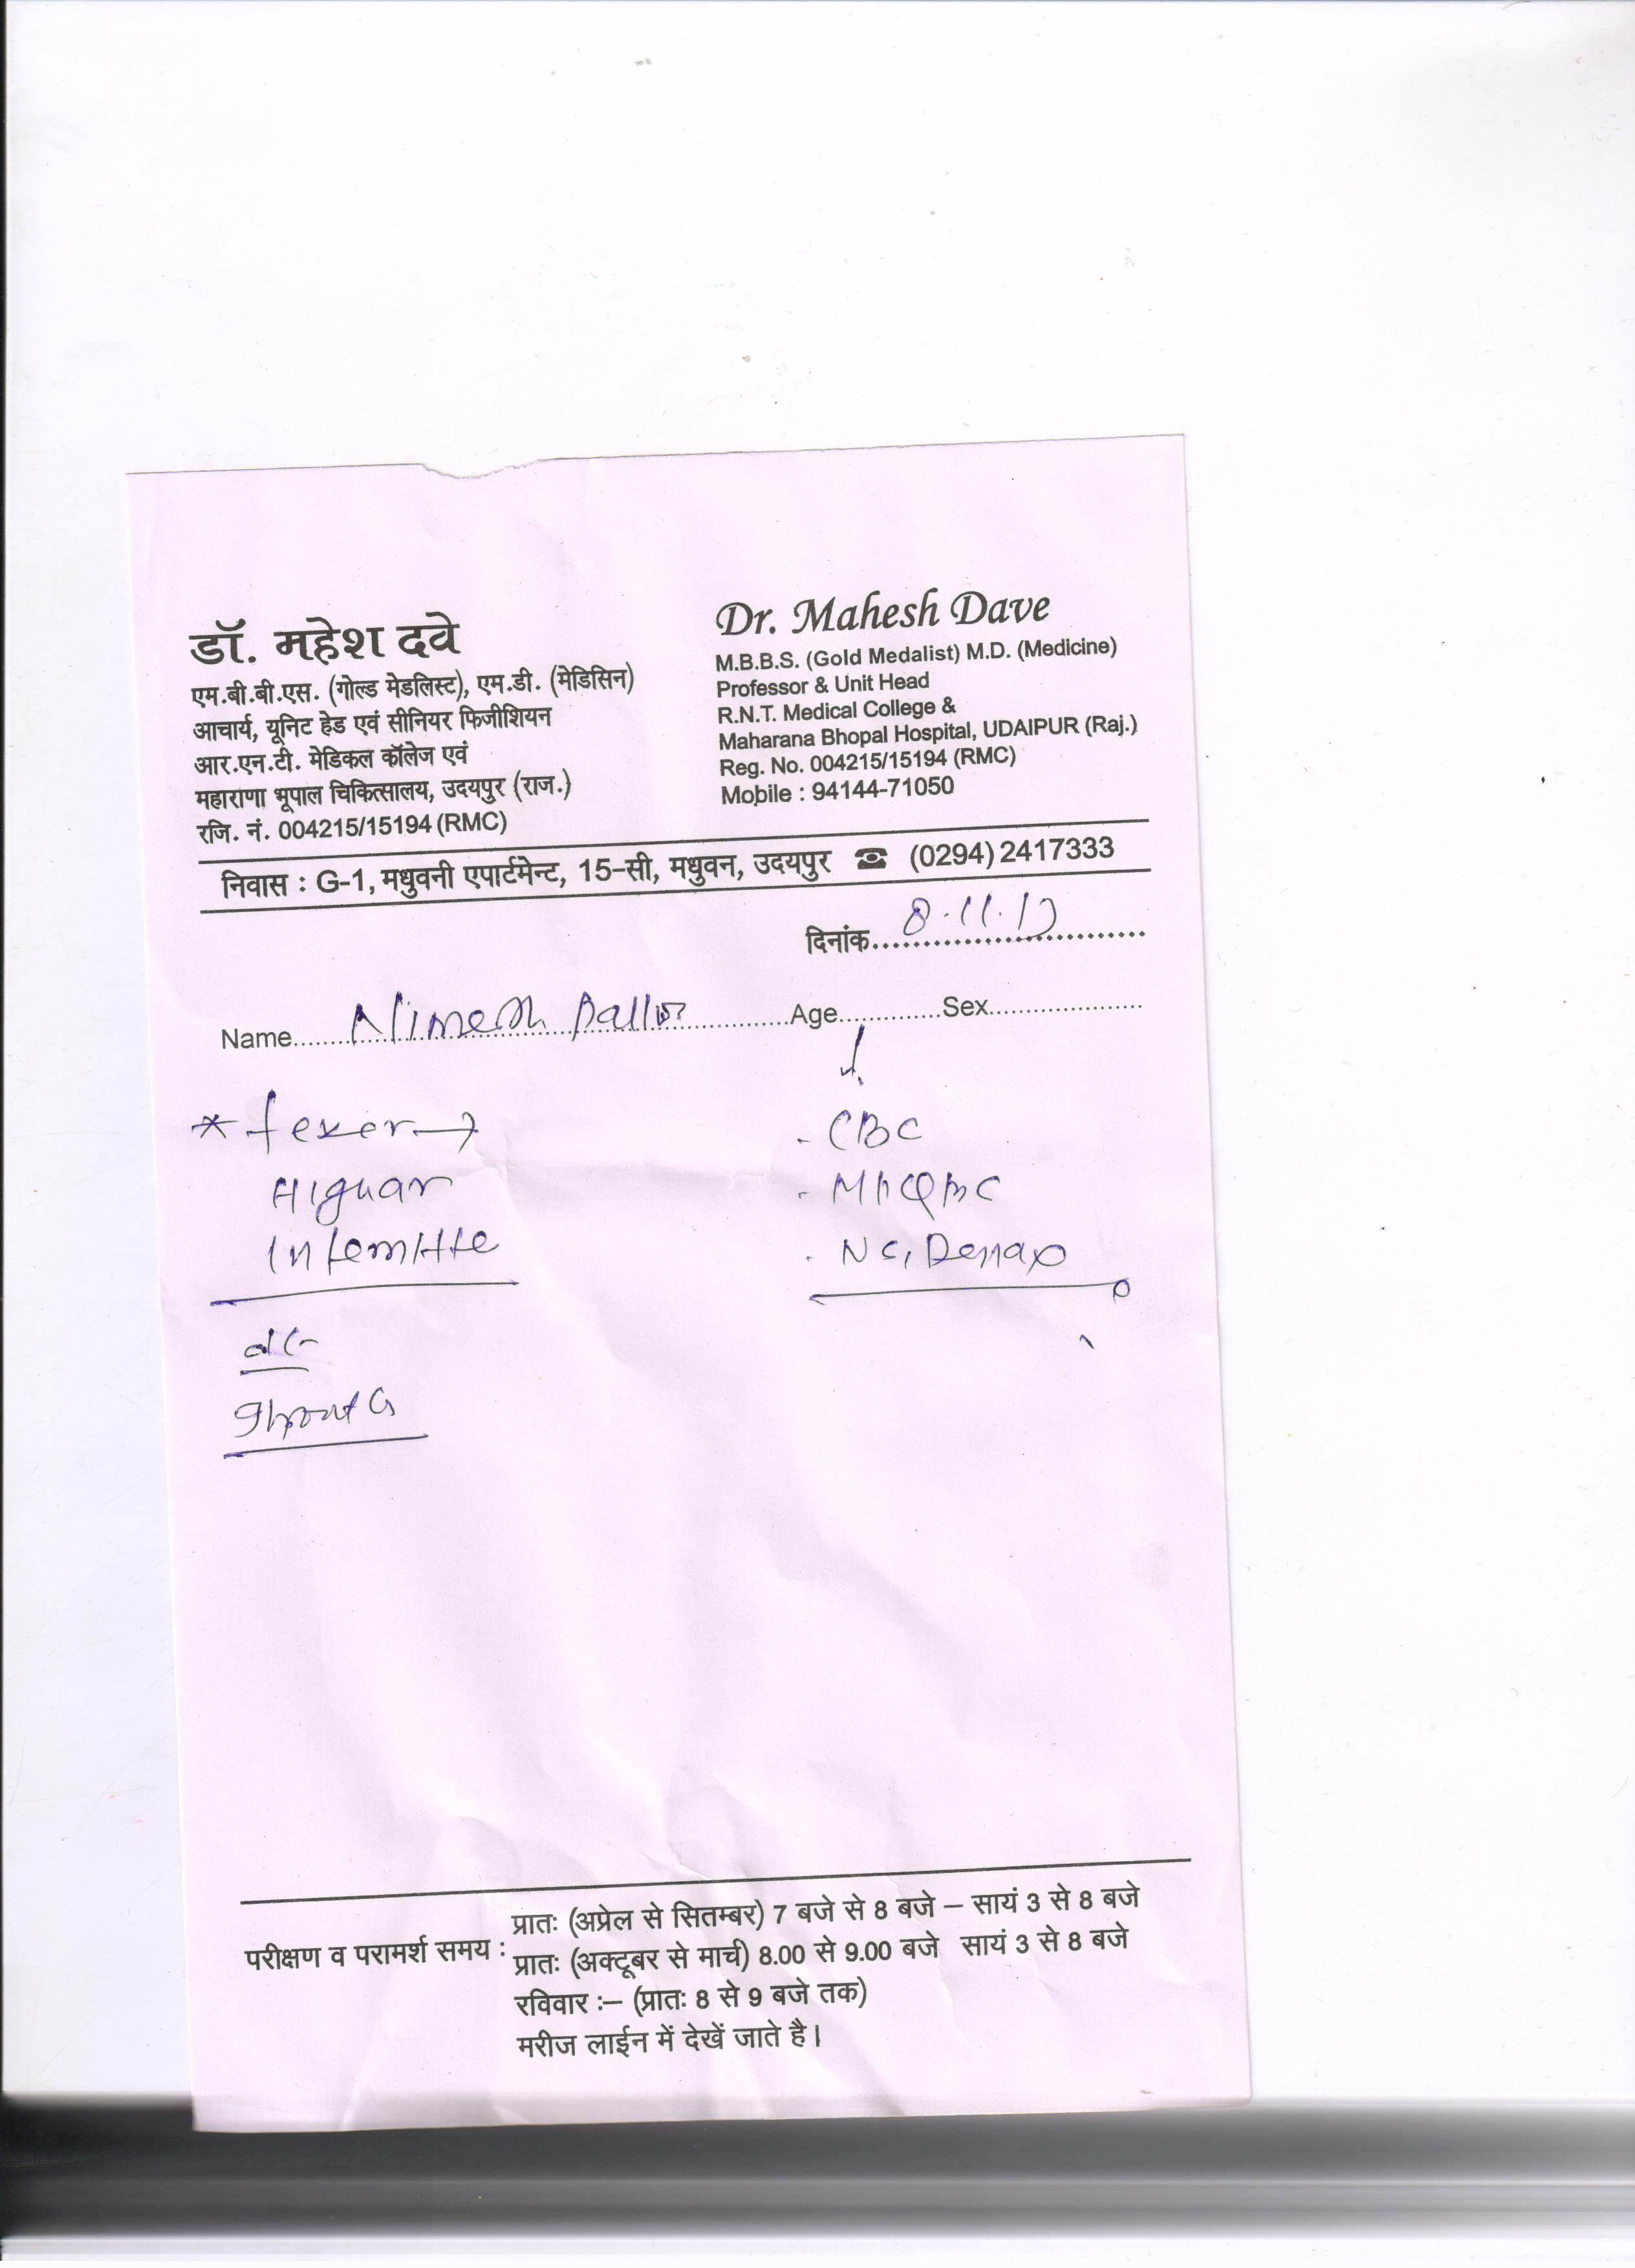 डॉ. महेश दवे
एम.बी.बी.एस. (गोल्ड मेडलिस्ट), एम.डी. (मेडिसिन)
आचार्य, यूनिट हेड एवं सीनियर फिजीशियन
आर.एन.टी. मेडिकल कॉलेज एवं
महाराणा भूपाल चिकित्सालय, उदयपुर (राज.)
रजि. नं. 004215/15194 (RMC)
Dr. Mahesh Dave
M.B.B.S. (Gold Medalist) M.D. (Medicine)
Professor & Unit Head
R.N.T. Medical College &
Maharana Bhopal Hospital, UDAIPUR (Raj.)
Reg. No. 004215/15194 (RMC)
Mobile : 94144-71050
निवास : G-1, मधुवनी एपार्टमेन्ट, 15-सी, मधुवन, उदयपुर ☎ (0294) 2417333
दिनांक 8.11.17
Name Nimesh Age Sex
* fever →
- CBC
- MP QBC
परीक्षण व परामर्श समय :
प्रातः (अप्रेल से सितम्बर) 7 बजे से 8 बजे – सायं 3 से 8 बजे
प्रातः (अक्टूबर से मार्च) 8.00 से 9.00 बजे सायं 3 से 8 बजे
रविवार :– (प्रातः 8 से 9 बजे तक)
मरीज लाईन में देखें जाते है।